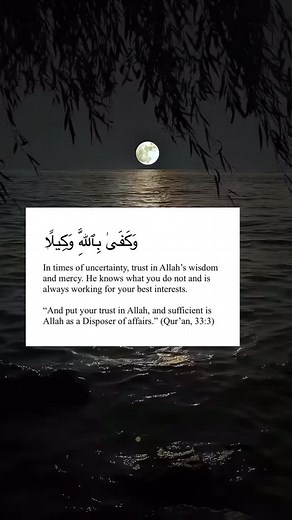 وَكَفَىٰ بِٱللَّهِ وَكِيلًا
In times of uncertainty, trust in Allah’s wisdom
and mercy. He knows what you do not and is
always working for your best interests.
“And put your trust in Allah, and sufficient is
Allah as a Disposer of affairs.” (Qur’an, 33:3)